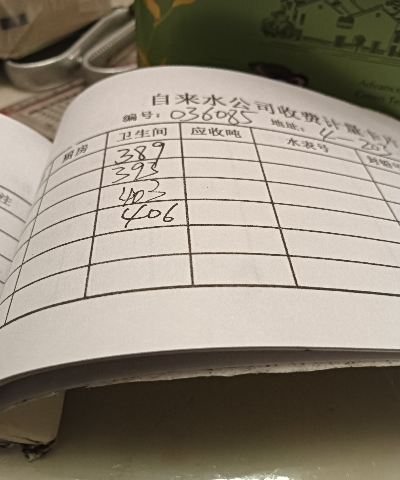 自来水公司收费计量卡片
编号: 036085 地址: 4 203
厨房 卫生间 应收吨 水表号
389
393
403
406
Advanced